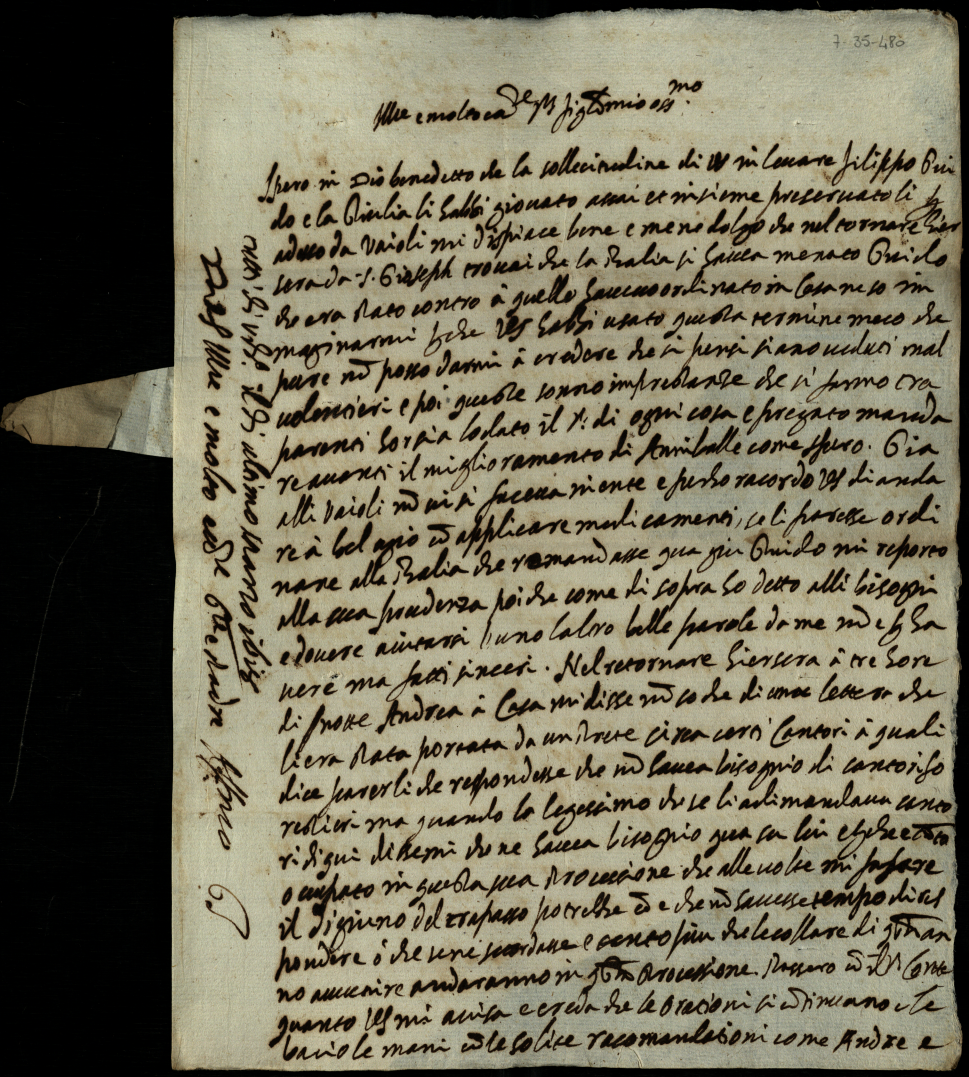 7 35-480
Ill.re e molto ca.. .. figl.. mio oss.mo
Spero in Dio benedetto che la sollecitudine di VS in levare filippo Gui
do e la Giulia li habbi giovato assai et insieme preservatoli p
adesso da Vaioli mi dispiace bene e me ne dolgo che nel tornare hier
sera da S. Gioseph trovai che la Thalia si havea menato Guido
che era stato contro à quello havevo ordinato in Casa ne so im
maginarmi p che VS habbi usato questa termine meco che
pure nō posso darmi à credere che si pensi siano veduti mal
volentieri e poi queste sonno imprestanze che si fanno tra
parenti hor sia lodato il S.r di ogni cosa e pregato manda
re avanti il miglioramento di Anniballe come spero. Gia
alli vaioli nō vi si faceva niente e racordo VS di anda
re à bel agio cō applicare medicamenti, se li paresse ordi
nare alla Thalia che remandasse qua giu Guido mi reporto
alla sua prudenza poi che come di sopra ho detto alli bisogni
e dovere aiutarsi l uno l altro belle parole da me nō e p ha
vere ma fatti sinceri. Nel retornare hiersera à tre hore
di notte Andrea à Casa mi disse nō so che di una lettera che
li era stata portata da un Prete circa certi Cantori à quali
dice parerli che respondesse che nō havea bisogno di cantori fo
restieri ma quando la legessimo che se li adimandava canto
ri di qui dissemi che ne havea bisogno qua su lui e p che e
ocupato in questa sua Processione che alle volte mi fa fare
il digiuno del trapasso potrebbe cō e che nō havesse tempo di res
pondere ò che se ne scordasse e cento piu che le collare di
no avvenire andaranno in Processione. cō il Conte
quanto VS mi avisa e creda che le orationi si cōtinuano e le
bacio le mani cō le solite racomandationi come Andrea e
tutti di 
Di VS Ill.re e molto